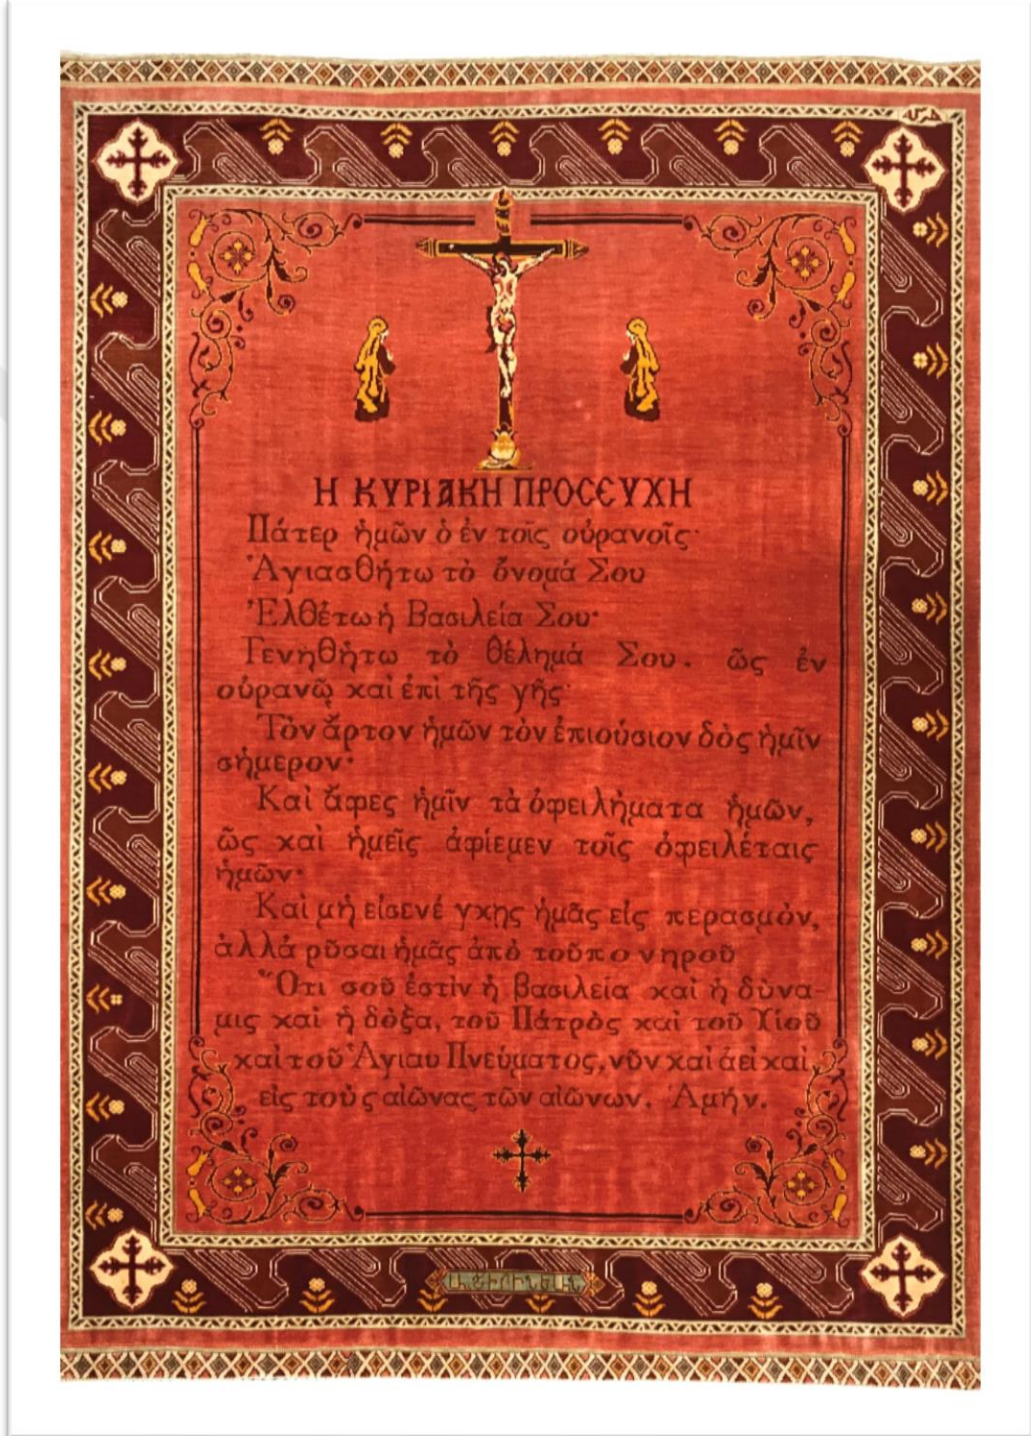 Η ΚΥΡΙΑΚΗ ΠΡΟCЄΥΧΗ
Πάτερ ἡμῶν ὁ ἐν τοῖς οὐρανοῖς·
Ἁγιασθήτω τὸ ὄνομά Σου
Ἐλθέτω ἡ Βασιλεία Σου·
Γενηθήτω τὸ θέλημά Σου. ὣς ἐν
οὐρανῷ καὶ ἐπὶ τῆς γῆς·
Τὸν ἄρτον ἡμῶν τὸν ἐπιούσιον δὸς ἡμῖν
σήμερον·
Καὶ ἄφες ἡμῖν τὰ ὀφειλήματα ἡμῶν,
ὣς καὶ ἡμεῖς ἀφίεμεν τοῖς ὀφειλέταις
ἡμῶν·
Καὶ μὴ εἰσενέ γκῃς ἡμᾶς εἰς περασμὸν,
ἀλλὰ ρῦσαι ἡμᾶς ἀπὸ τοῦ πο νηροῦ
Ὅτι σοῦ ἐστὶν ἡ βασιλεία καὶ ἡ δὺνα-
μις καὶ ἡ δὸξα, τοῦ Πάτρὸς καὶ τοῦ Υἱοῦ
καὶ τοῦ Ἁγιαυ Πνεύματος, νῦν καὶ ἀεὶ καὶ
εἰς τοὺς αἰῶνας τῶν αἰῶνων. Ἀμήν.